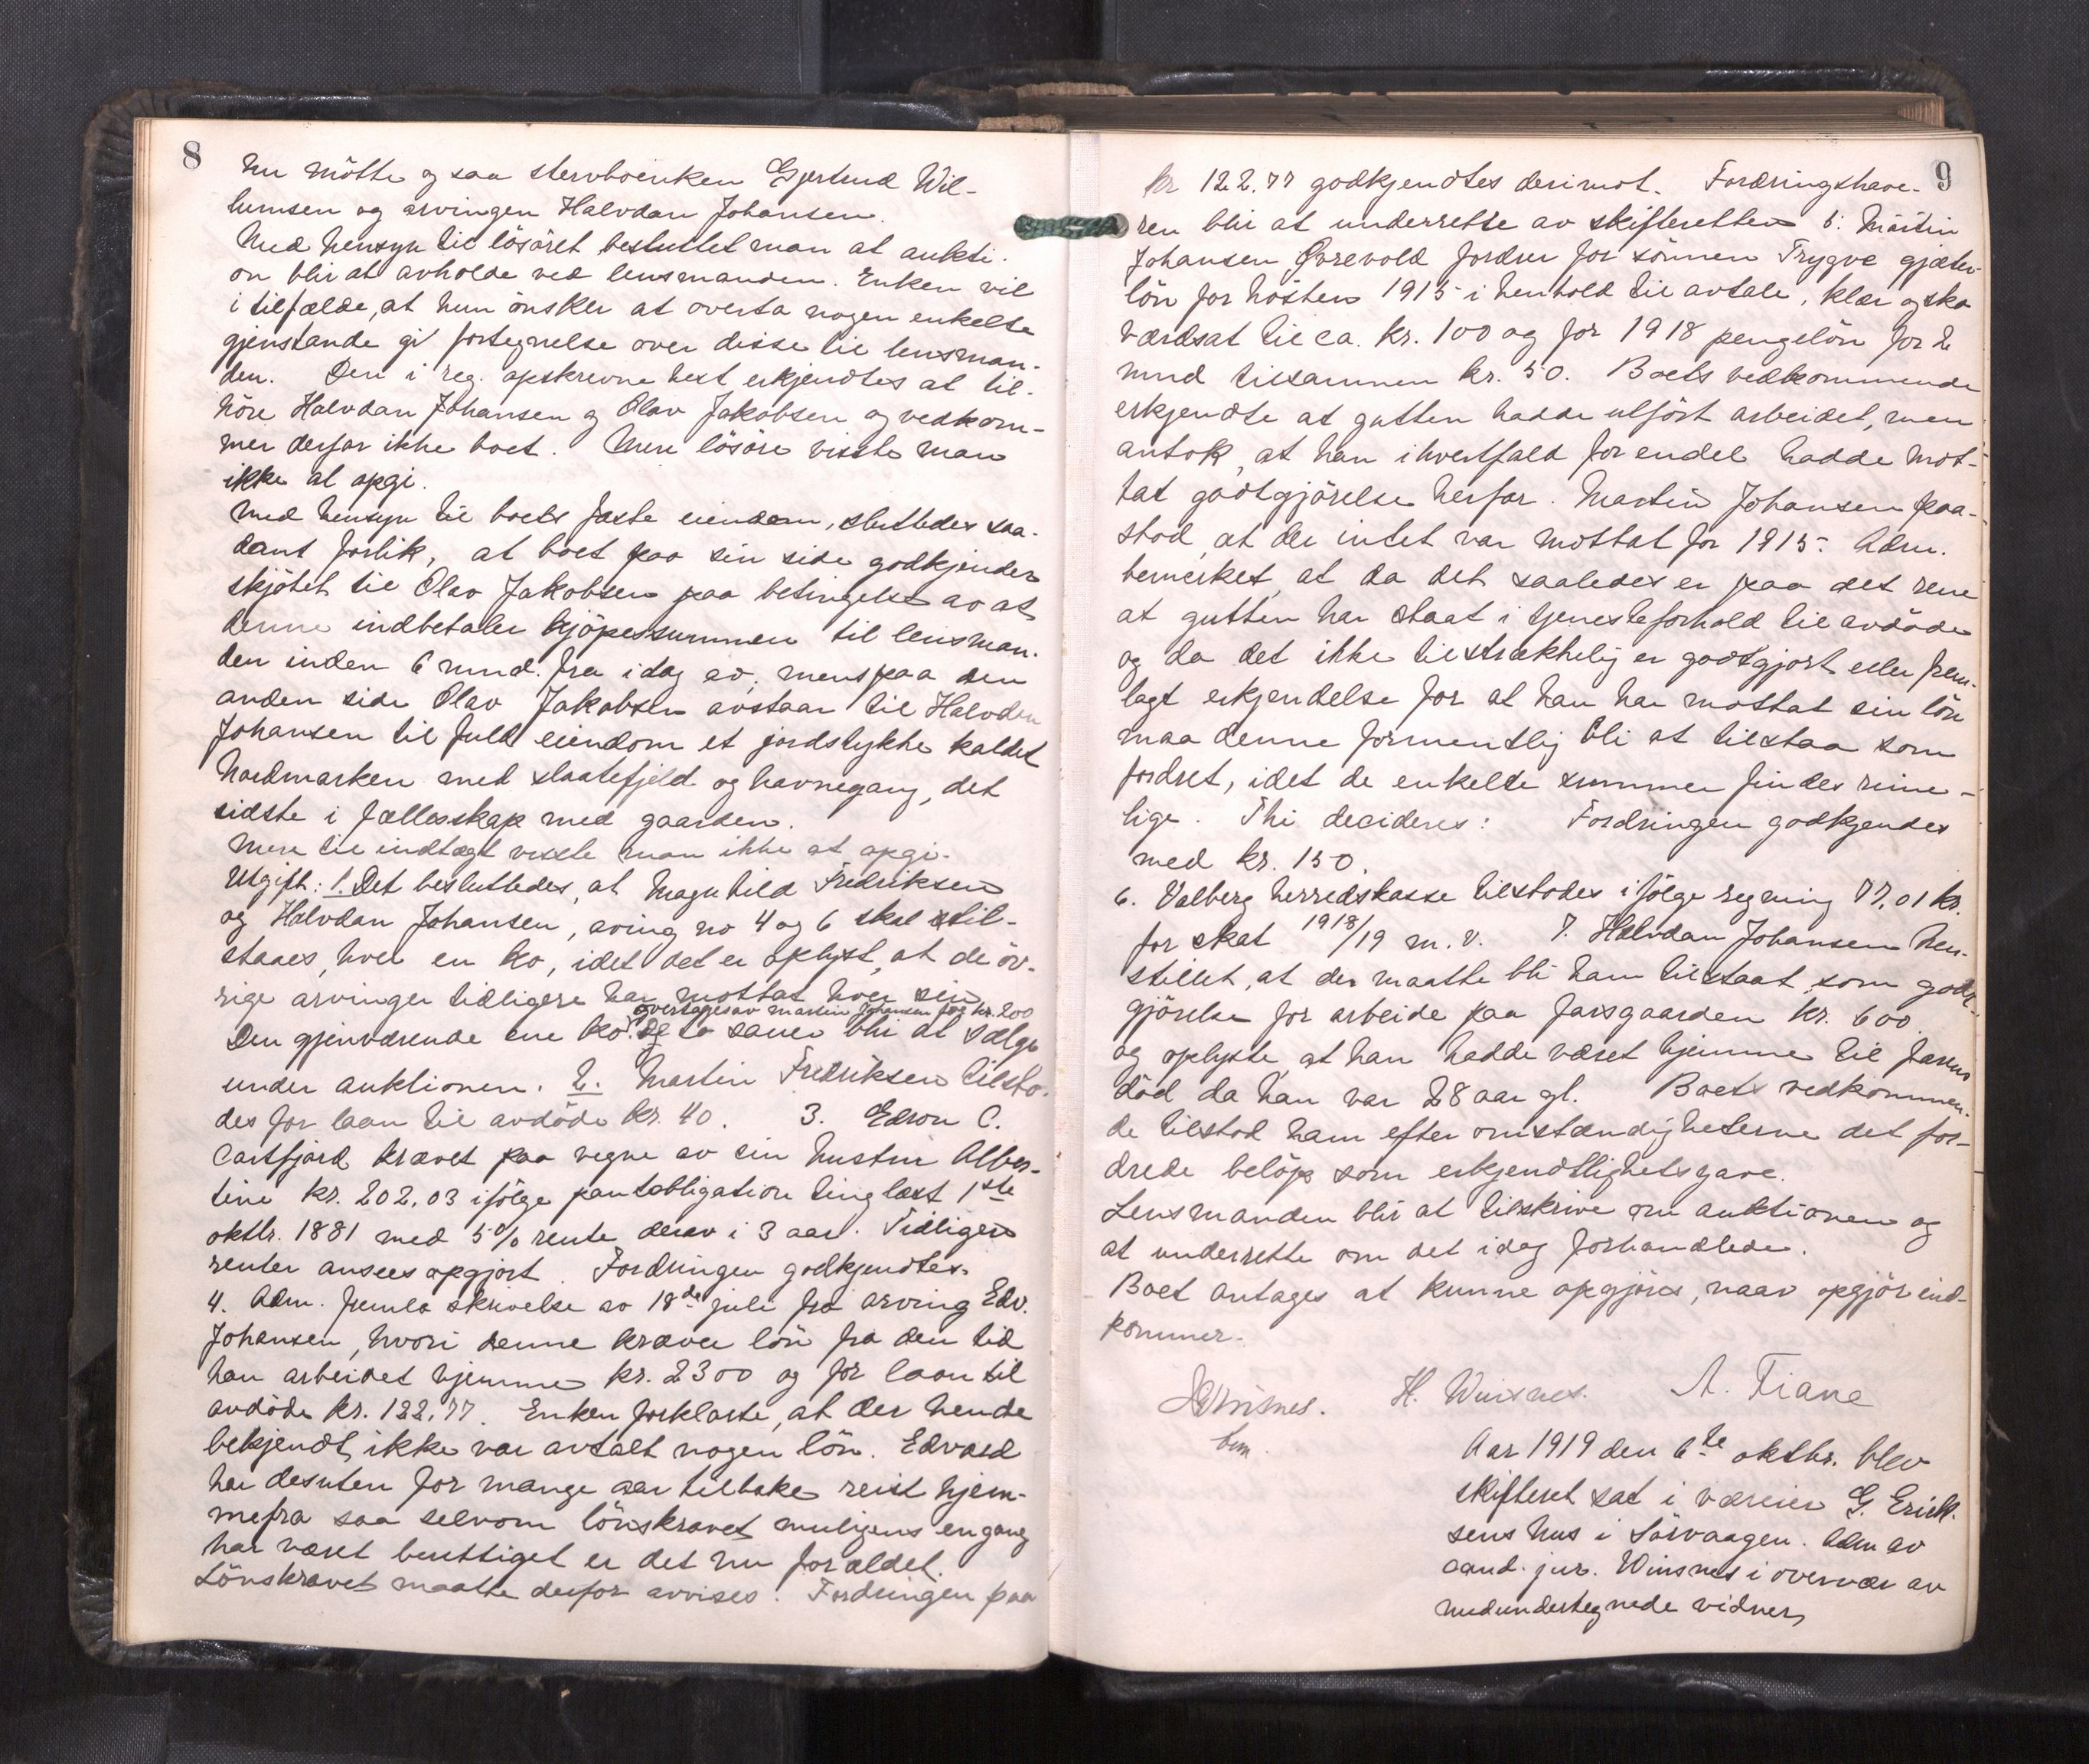 8
Nu mötte og saa stervboenken Gjertrud Wil-
lumsen og arvingen Halvdan Johansen.
Med hensyn til lösöret besluttet man at aukti-
on blir at avholde ved lensmanden. Enken vil
i tilfælde, at hun önsker at overta nogen enkelte
gjenstande gi fortegnelse over disse til lensman-
den. Den i reg. opskrevne hest erkjendtes at til-
höre Halvdan Johansen og Olav Jakobsen og vedkom-
mer derfor ikke boet. Mere lösöre visste man
ikke at opgi.
Med hensyn til boets faste eiendom, sluttedes saa-
dant forlik, at boet paa sin side godkjender
skjötet til Olav Jakobsen paa betingelse av at
denne indbetaler kjöpessummen til lensman-
den inden 6 mnd. fra idag av, mens paa den
anden side Olav Jakobsen avstaar til Halvdan
Johansen til fuld eiendom et jordstykke kaldet
Nordmarken med slaatefjeld og havnegang, det
sidste i fællesskap med gaarden.
Mere til indtægt visste man ikke at opgi.
Utgift: 1. Det besluttedes, at Magnhild Fredriksen
og Halvdan Johansen, arving no 4 og 6 skal til-
staaes hver en ko, idet det er oplyst, at de öv-
rige arvinger tidligere har mottat hver sin
overtages av Martin Johansen for kr. 200
Den gjenværende ene ko. Og to sauer blir at sælge
under auktionen. 2. Martin Fredriksen tilsto-
des for laan til avdöde kr. 40. 3. Edron C.
Carsfjord krævet paa vegne av sin hustru Alber-
tine kr. 202,03 ifölge pantobligation tinglæst 1ste
oktbr. 1881 med 5% rente derav i 3 aar. Tidligere
renter ansees opgjort. Fordringen godkjendtes.
4. Adm. fremla skrivelse av 18de juli fra arving Edv.
Johansen, hvori denne kræver lön fra den tid
han arbeidet hjemme kr. 2300 og for laan til
avdöde kr. 122,77. Enken forklarte, at der hende
bekjendt ikke var avtalt nogen lön. Edvard
har desuten for mange aar tilbake reist hjem-
mefra saa selvom lönskravet muligens engang
har været berettiget er det nu forældet.
Lönskravet maatte derfor avvises. Fordringen paa
9
kr 122.77 godkjendtes derimot. Fordringshave-
ren blir at underrette av skifteretten 5. Martin
Johansen Övrevold fordrer for sönnen Trygve gjæter-
lön for hösten 1915 i henhold til avtale, klær og sko
værdsat til ca. kr. 100 og for 1918 pengelön for 2
mnd tilsammen kr. 50. Boets vedkommende
erkjendte at gutten hadde utfört arbeidet, men
antok, at han ihvertfald for endel hadde mot-
tat godtgjörelse herfor. Martin Johansen paa-
stod at der intet var mottat for 1915. Adm.
bemerket, at da det saaledes er paa det rene
at gutten har staat i tjenesteforhold til avdöde
og da det ikke tilstrækkelig er godtgjort eller frem-
lagt erkjendelse for at han har mottat sin lön
maa denne formentlig bli at tilstaa som
fordret, idet de enkelte summer findes rime-
lige. Thi decideres: Fordringen godkjendes
med kr. 150.
6. Valberg herredskasse tilstodes ifölge regning 77,01 kr.
for skat 1918/19 m. v. 7. Halvdan Johansen hen-
stillet, at der maatte bli ham tilstaat som godt-
gjörelse for arbeide paa farsgaarden kr. 600
og oplyste at han hadde været hjemme til farens
död da han var 28 aar gl. Boets vedkommen-
de tilstod ham efter omstændigheterne det for-
drede belöp som erkjendtlighetsgave.
Lensmanden blir at tilskrive om auktionen og
at underrette om det idag forhandlede.
Boet antages at kunne opgjöres, naar opgjör ind-
kommer.
H. Winsnes. A. Tiane
Aar 1919 den 6te oktbr. blev
skifteret sat i væreier G. Erick-
sens hus i Sörvaagen. Adm av
cand. jur. Winsnes i overvær av
medundertegnede vidner,